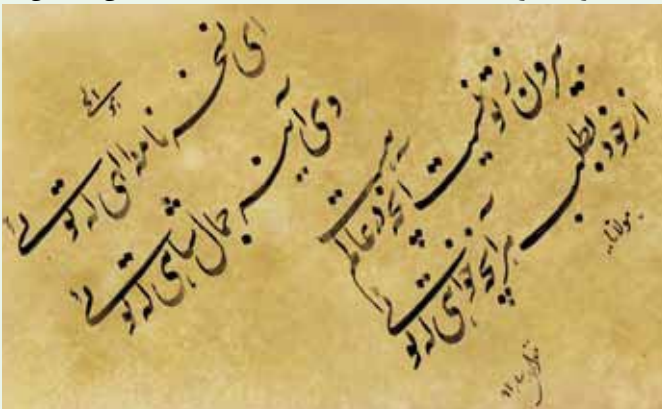 ای نسخه نامه الهی که توئی
وی آینه جمال شاهی که توئی
بیرون ز تو نیست آنچه در عالم هست
از خود بطلب هر آنچه خواهی که توئی
مولانا